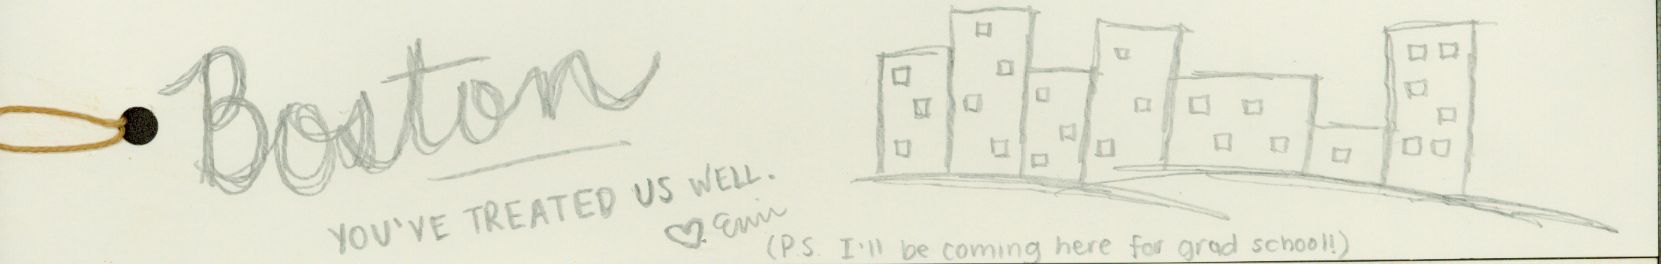 Boston
YOU'VE TREATED US WELL.
♡ Erin
(P.S. I'll be coming here for grad school!)